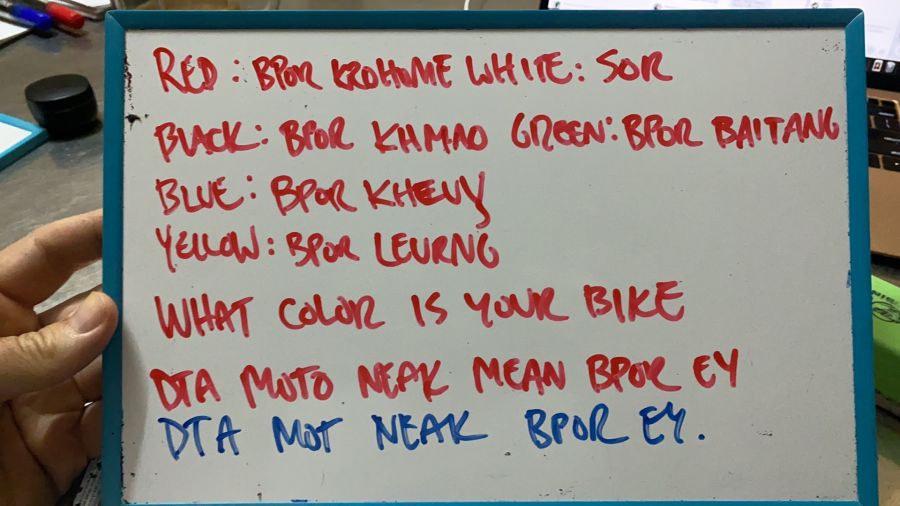 RED: BPOR KROHOME WHITE: SOR
BLACK: BPOR KHMAO GREEN: BPOR BAITANG
BLUE: BPOR KHEUY
YELLOW: BPOR LEURNG
WHAT COLOR IS YOUR BIKE
DTA MOTO NEAK MEAN BPOR EY
DTA MOT NEAK BPOR EY.